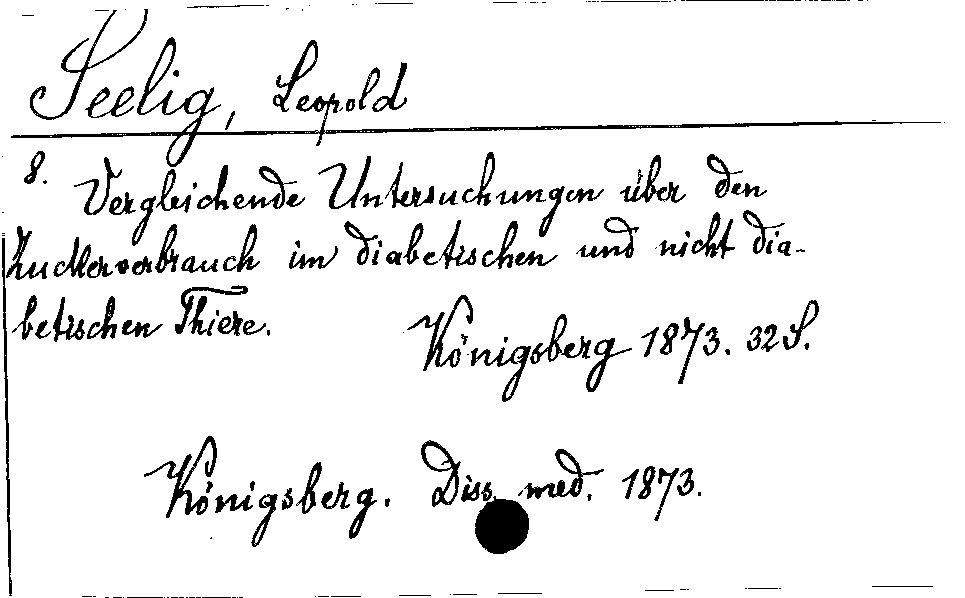 Seelig, Leopold
8. Vergleichende Untersuchungen über den
Zuckerverbrauch im diabetischen und nicht dia-
betischen Thiere.
Königsberg 1873. 32 S.
Königsberg. Diss. med. 1873.